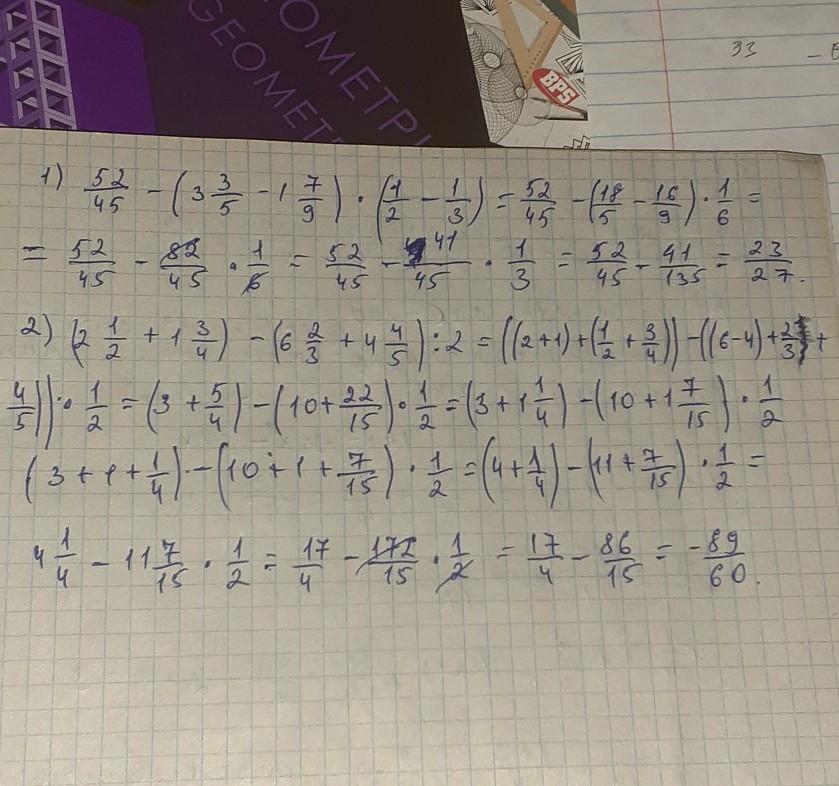 GEOMETRI
GEOMET
BPS
33
1) 52/45 − (3 3/5 − 1 7/9) · (1/2 − 1/3) = 52/45 − (18/5 − 16/9) · 1/6 =
= 52/45 − 82/45 · 1/6 = 52/45 − 41/45 · 1/3 = 52/45 − 41/135 = 23/27.
2) (2 1/2 + 1 3/4) − (6 2/3 + 4 4/5) : 2 = ((2+1) + (1/2 + 3/4)) − ((6−4) + 2/3 +
4/5)) · 1/2 = (3 + 5/4) − (10 + 22/15) · 1/2 = (3 + 1 1/4) − (10 + 1 7/15) · 1/2
(3 + 1 + 1/4) − (10 + 1 + 7/15) · 1/2 = (4 + 1/4) − (11 + 7/15) · 1/2 =
4 1/4 − 11 7/15 · 1/2 = 17/4 − 172/15 · 1/2 = 17/4 − 86/15 = −89/60.